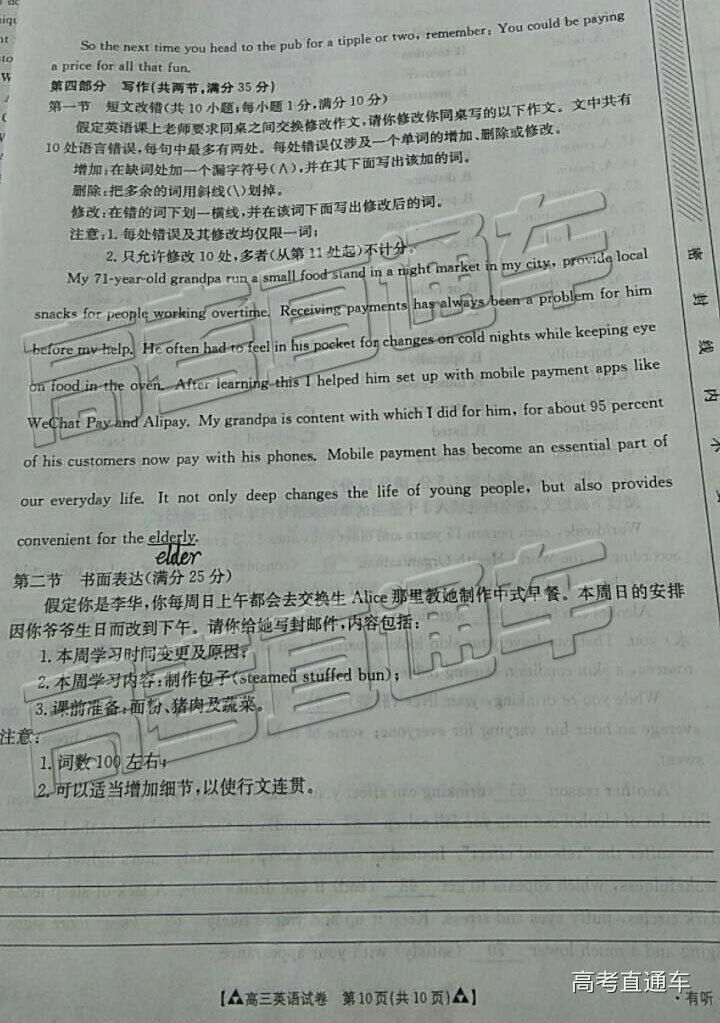 So the next time you head to the pub for a tipple or two, remember: You could be paying
a price for all that fun.
第四部分 写作(共两节,满分 35 分)
第一节 短文改错(共 10 小题;每小题 1 分,满分 10 分)
假定英语课上老师要求同桌之间交换修改作文,请你修改你同桌写的以下作文。文中共有
10 处语言错误,每句中最多有两处。每处错误仅涉及一个单词的增加、删除或修改。
增加:在缺词处加一个漏字符号(∧),并在其下面写出该加的词。
删除:把多余的词用斜线(\)划掉。
修改:在错的词下划一横线,并在该词下面写出修改后的词。
注意:1. 每处错误及其修改均仅限一词;
2. 只允许修改 10 处,多者(从第 11 处起)不计分。
My 71-year-old grandpa run a small food stand in a night market in my city, provide local
snacks for people working overtime. Receiving payments has always been a problem for him
before my help. He often had to feel in his pocket for changes on cold nights while keeping eye
on food in the oven. After learning this I helped him set up with mobile payment apps like
WeChat Pay and Alipay. My grandpa is content with which I did for him, for about 95 percent
of his customers now pay with his phones. Mobile payment has become an essential part of
our everyday life. It not only deep changes the life of young people, but also provides
convenient for the elderly.
elder
第二节 书面表达(满分 25 分)
假定你是李华,你每周日上午都会去交换生 Alice 那里教她制作中式早餐。本周日的安排
因你爷爷生日而改到下午。请你给她写封邮件,内容包括:
1. 本周学习时间变更及原因;
2. 本周学习内容:制作包子(steamed stuffed bun);
3. 课前准备:面粉、猪肉及蔬菜。
注意:
1. 词数 100 左右;
2. 可以适当增加细节,以使行文连贯。
【高三英语试卷 第 10 页(共 10 页)】
·有听
密封线内不
高考直通车
高考直通车
高考直通车